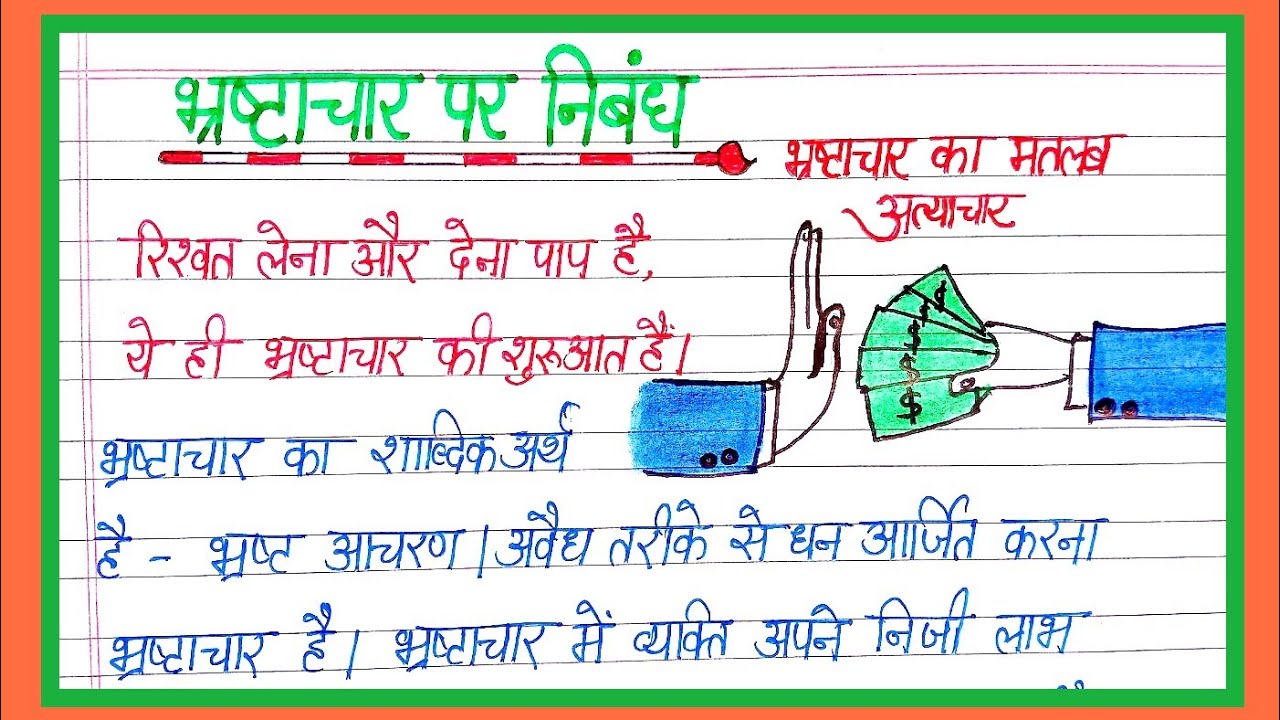 भ्रष्टाचार पर निबंध
भ्रष्टाचार का मतलब
अत्याचार
रिश्वत लेना और देना पाप है,
ये ही भ्रष्टाचार की शुरूआत हैं।
भ्रष्टाचार का शाब्दिक अर्थ
है - भ्रष्ट आचरण। अवैध तरीके से धन आर्जित करना
भ्रष्टाचार है। भ्रष्टाचार में व्यक्ति अपने निजी लाभ
$
$
$
$
$